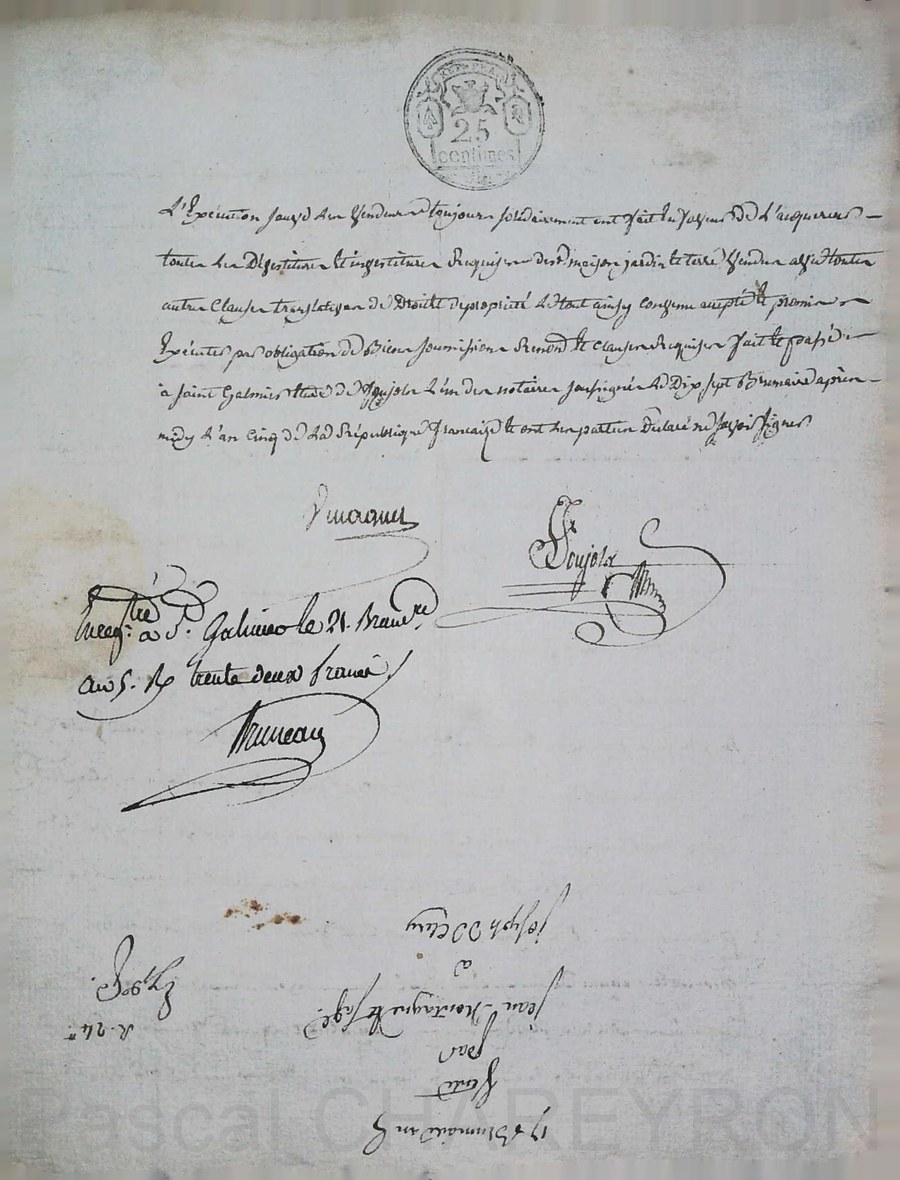 REP. FRA.
25
centimes
L'Execution Les Vendeurs toujours solidairement ont fait en faveur de L'acquereur
toutes Les Devestitures et investitures Requises des maison jardin et terre Vendus avec toutes
autres Clauses translatives de Droits et propriété Le tout ainsy convenu accepté et promis
Executer par obligation de Biens Soumissions Renonc et Clauses Requises fait et passé
à Saint Galmier Etude de Poujola L'un des notaires Soussignés Le Dix Sept Brumaire après
midy L'an Cinq de La République française et ont Les parties Déclaré ne Savoir Signer
Poujola
Enregtré à St. Galmier le 21. Brumre.
an 5. R trente deux francs
Bruneau
17 Brumaire an 5
Vente
par
jean Montagne et sa fe.
a
joseph
R. 24
Pascal CHAREYRON